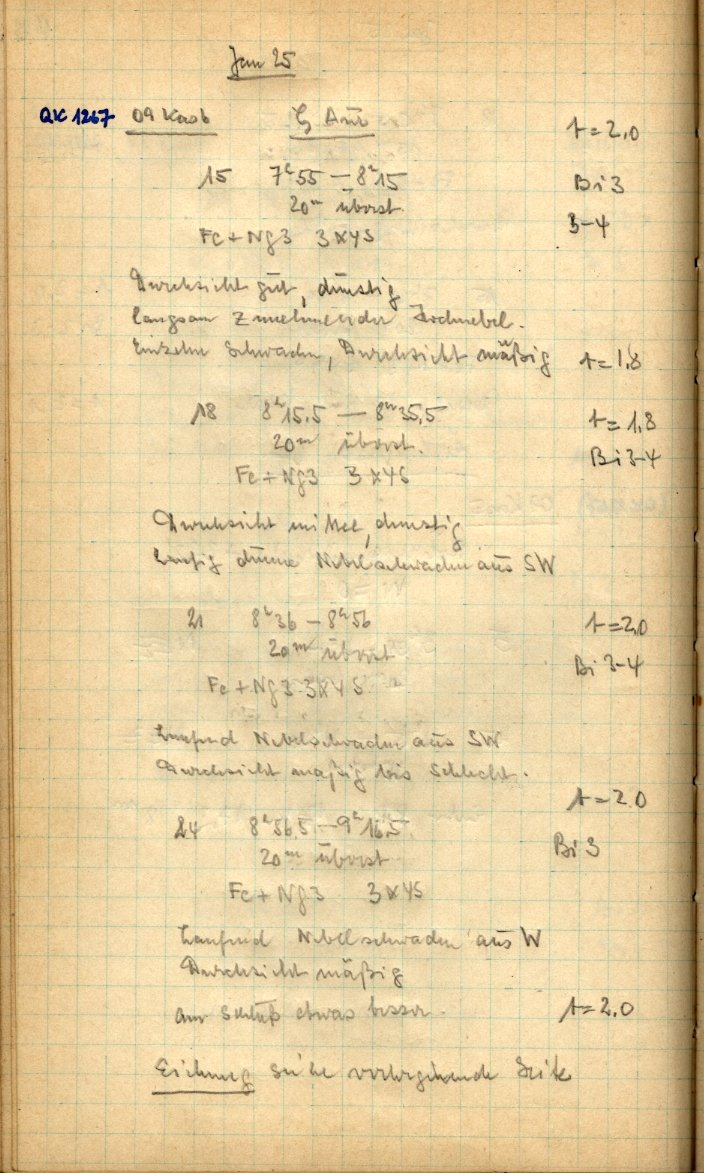 Jan 25
QK 1267 09 Kasb ζ Aur t = 2,0
15 7ʰ55 — 8ʰ15 Bi 3
20ᵐ überst. 3-4
Fe + Ng3 3x45
Durchsicht gut, dunstig
langsam zunehmender Hochnebel.
Einzelne Schwaden, Durchsicht mäßig t = 1,8
18 8ʰ15,5 — 8ʰ35,5 t = 1,8
20ᵐ überst. Bi 3-4
Fe + Ng3 3x45
Durchsicht mittel, dunstig
häufig dünne Nebelschwaden aus SW
21 8ʰ36 — 8ʰ56 t = 2,0
20ᵐ überst. Bi 3-4
Fe + Ng3 3x45
Laufend Nebelschwaden aus SW
Durchsicht mäßig bis schlecht.
t = 2,0
24 8ʰ56,5 — 9ʰ16,5 Bi 3
20ᵐ überst
Fe + Ng3 3x45
Laufend Nebelschwaden aus W
Durchsicht mäßig
am Schluß etwas besser. t = 2,0
Eichung siehe vorhergehende Seite